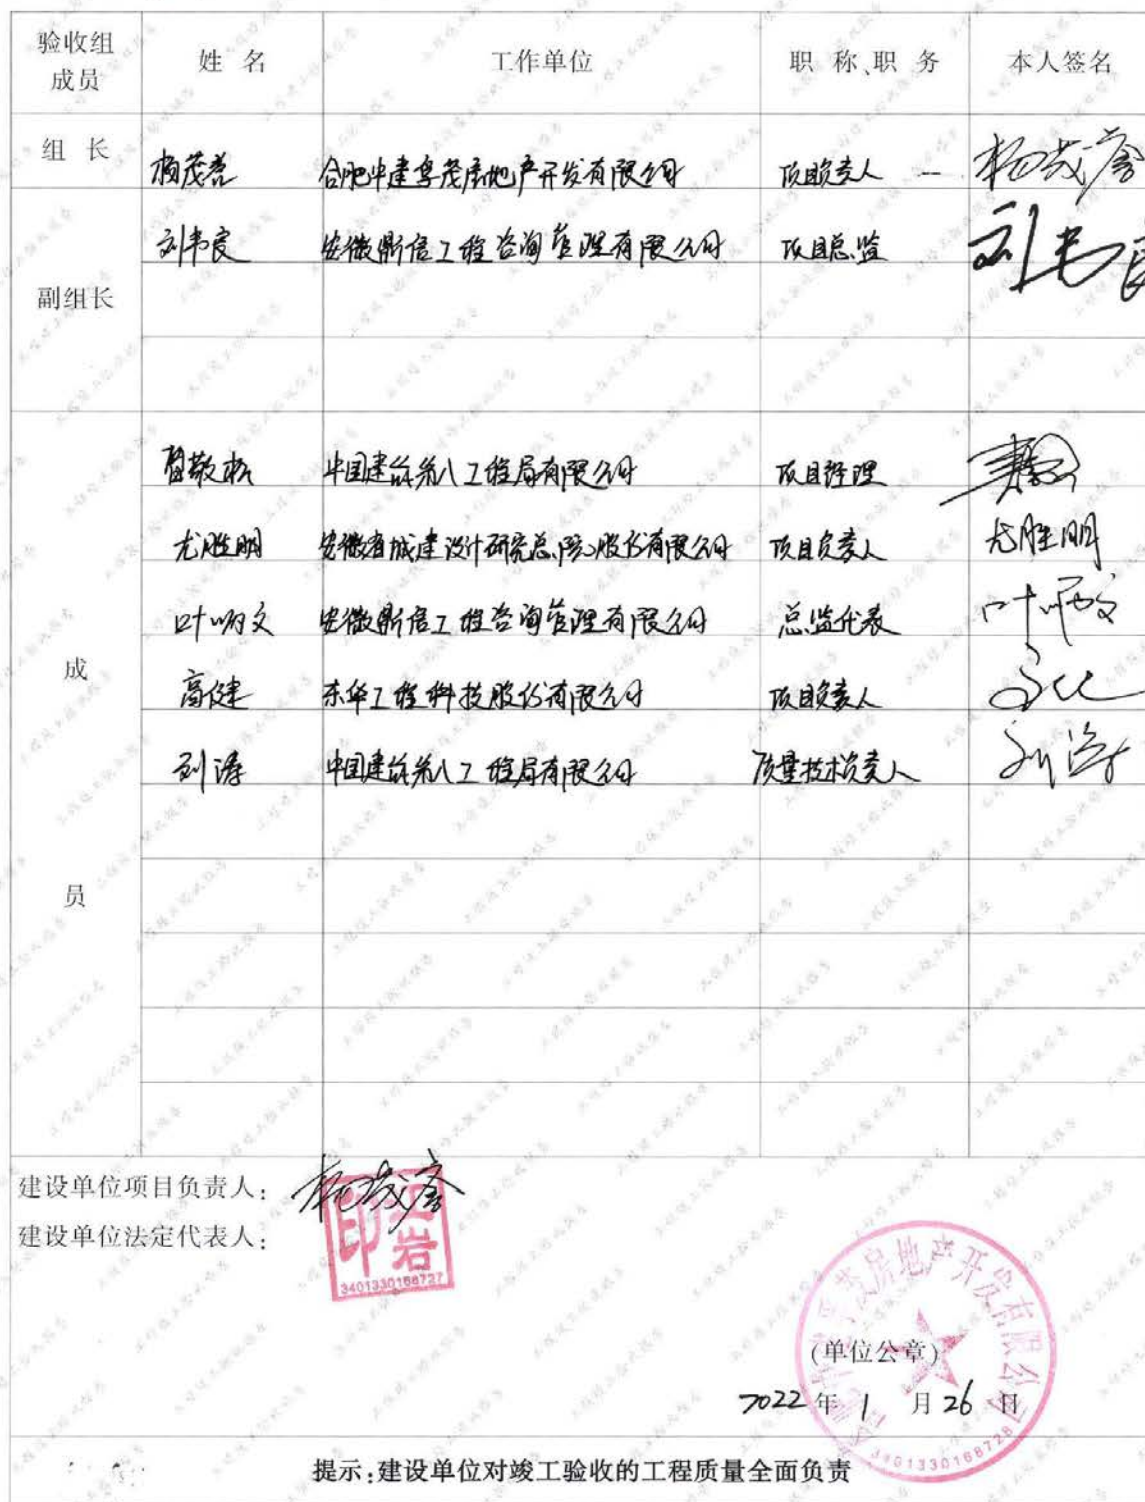 验收组
成员
姓 名
工作单位
职 称、职 务
本人签名
组 长
合肥中建孚茂房地产开发有限公司
项目负责人
副组长
刘韦良
安徽鼎信工程咨询管理有限公司
项目总监
刘韦良
成
员
中国建筑第八工程局有限公司
项目经理
尤胜明
安徽省城建设计研究总院股份有限公司
项目负责人
尤胜明
叶啸文
安徽鼎信工程咨询管理有限公司
总监代表
高健
东华工程科技股份有限公司
项目负责人
刘涛
中国建筑第八工程局有限公司
质量技术负责人
刘涛
建设单位项目负责人:
建设单位法定代表人:
3401330168727
房地产开发有限公司
(单位公章)
2022 年 1 月 26 日
3401330168728
提示:建设单位对竣工验收的工程质量全面负责